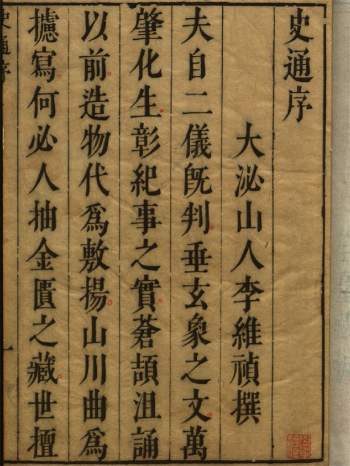 史通序
大泌山人李維禎撰
夫自二儀旣判垂玄象之文萬
肇化生彰紀事之實蒼頡沮誦
以前造物代爲敷揚山川曲爲
攄寫何必人抽金匱之藏世檀
史通序